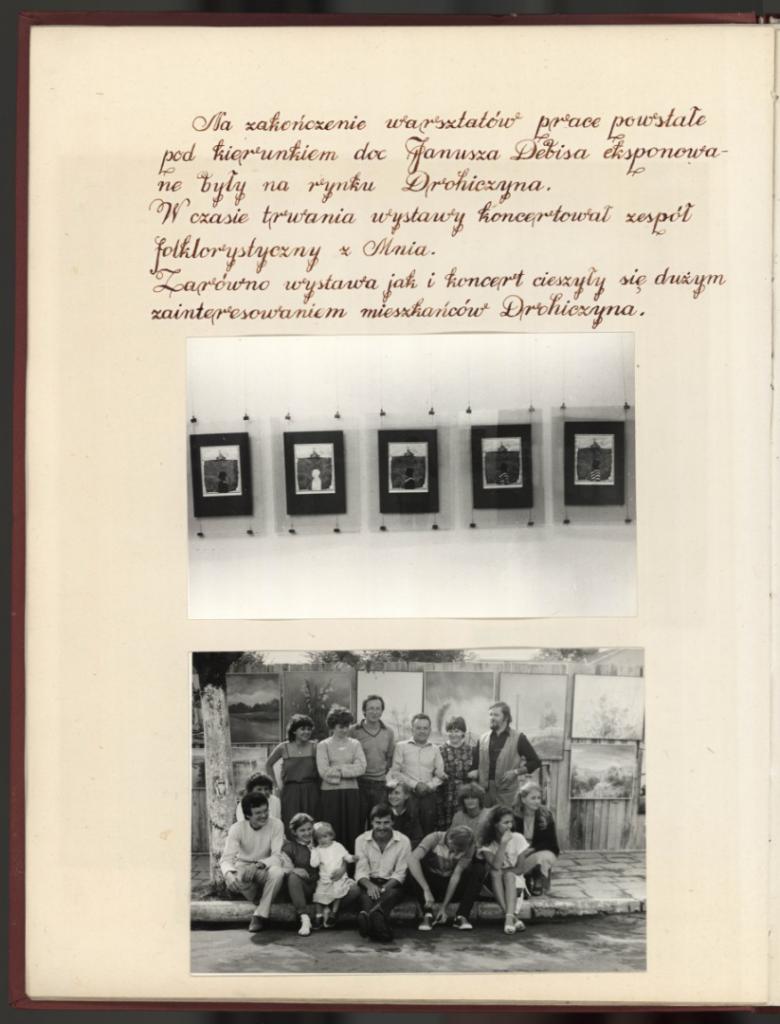 Na zakończenie warsztatów prace powstałe
pod kierunkiem doc Janusza Debisa eksponowa-
ne były na rynku Drohiczyna.
W czasie trwania wystawy koncertował zespół
folklorystyczny z Mnia.
Zarówno wystawa jak i koncert cieszyły się dużym
zainteresowaniem mieszkańców Drohiczyna.